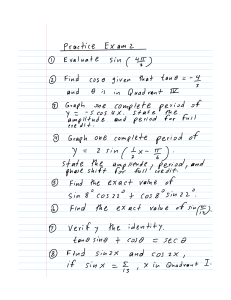 Practice Exam 2
① Evaluate sin ( 4π/3 )
② Find cosθ given that tanθ = -4/3
and θ is in Quadrant IV
③ Graph one complete period of
y = -5 cos 4x. State the
amplitude and period for full
credit.
④ Graph one complete period of
y = 2 sin ( 1/2 x - π/6 )
State the amplitude, period, and
phase shift for full credit.
⑤ Find the exact value of
sin 8° cos 22° + cos 8° sin 22°.
⑥ Find the exact value of sin(π/12).
⑦ Verify the identity.
tanθ sinθ + cosθ = secθ
⑧ Find sin2x and cos2x,
if sin x = 5/13, x in Quadrant I.